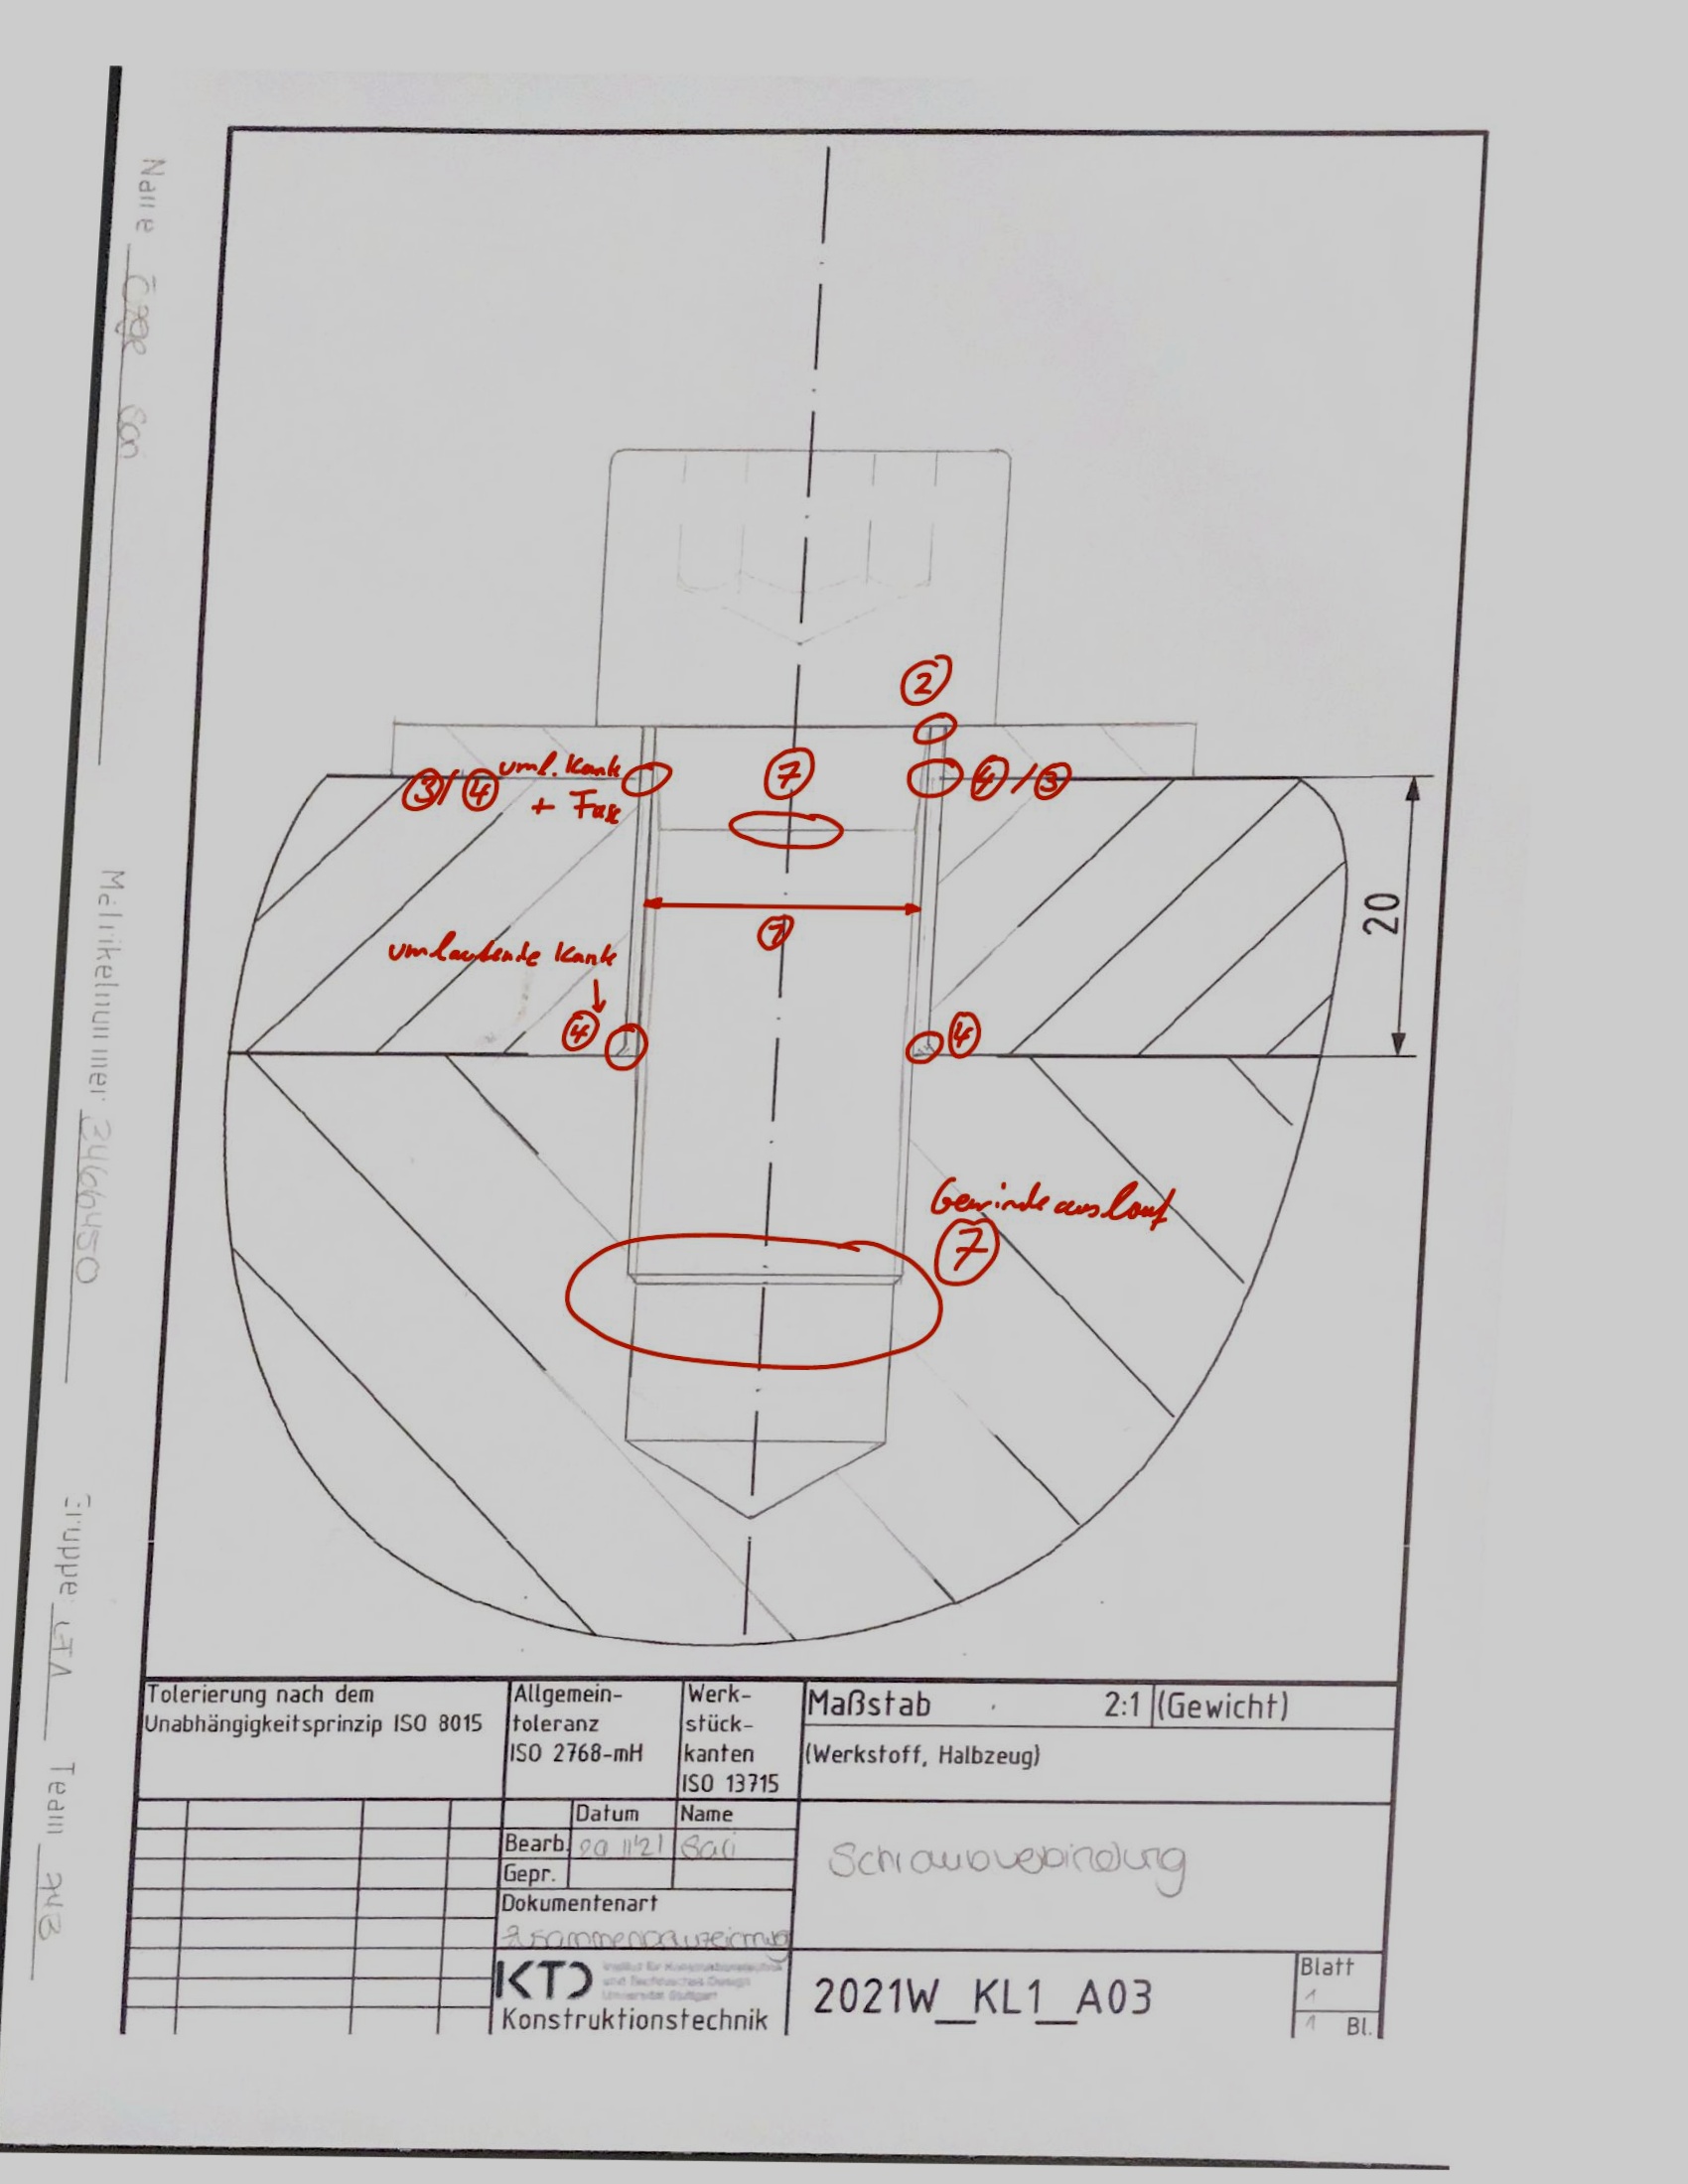 Name
Matrikelnummer 3466450
Gruppe
Team
2
uml. Kante
+ Fase
3/4
7
4/3
20
7
umlaufende Kante
4
4
Gewindeauslauf
7
Tolerierung nach dem
Unabhängigkeitsprinzip ISO 8015
Allgemein-
toleranz
ISO 2768-mH
Werk-
stück-
kanten
ISO 13715
Maßstab 2:1 (Gewicht)
(Werkstoff, Halbzeug)
Datum Name
Bearb.
Gepr.
Dokumentenart
Zusammenbauzeichnung
Schraubverbindung
KTD
Institut für Konstruktionstechnik
und Technisches Design
Universität Stuttgart
Konstruktionstechnik
2021W_KL1_A03
Blatt
1
1 Bl.